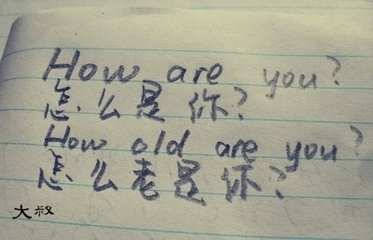 How are you?
怎么是你?
How old are you?
怎么老是你?
大叔